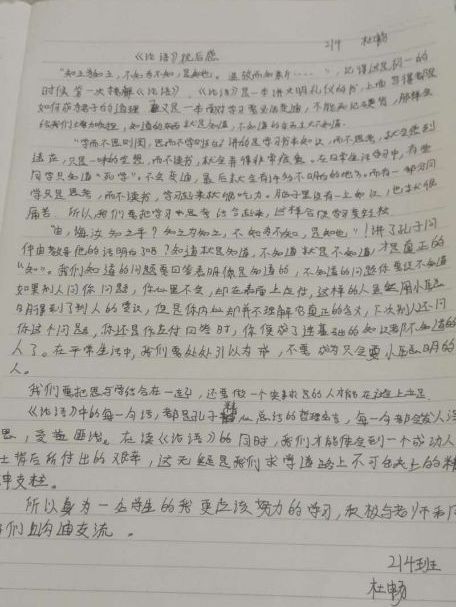 214 杜畅
《论语》观后感
"知之为知之，不知为不知，是知也。温故而知新……"，记得这是初一的
时候第一次接触《论语》，《论语》是一本讲文明礼仪的书，上面写得都是
如何成为君子的道理
给我们，知道的就是知道，不知道的
"学而不思则罔，思而不学则殆"讲的是学习书本知识，而不思考，就会感到
迷茫，只是一味的空想，而不读书，就会弄得非常疲惫。在日常生活学习中，有些
同学只知道"死学"，不会变通，最后就会有许多不明白的地方。而有一部分同
学只是思考，而不读书，学习起来就很吃力。脑子里没有一点知识，也就很
痛苦，所以我们要把学习和思考结合起来，这样会使学习更轻松
"由，诲汝知之乎？知之为知之，不知为不知，是知也"！讲了孔子问
仲由教导他的话明白了吗？知道就是知道，不知道就是不知道，才是真正的
"知"。我们知道的问题要回答表明你是知道的，不知道的问题你要说不知道
如果别人问你问题，你心里不会，却在表面上应付，这样的人虽然用小聪
明得到了别人的赞议，但是你内心却并不理解它真正的含义，下次别人还问
你这个问题，你还是你应付回答时，你便成了连基础的知识都不知道的
人了。在平常生活中，我们要处处引以为戒，不要成为只会耍小聪明的
人。
我们要把思与学结合在一起，还要做一个实事求是的人才能在这世上立足
《论语》中的每一句话，都是孔子精心总结的哲理名言，每一句都会发人深
思，受益匪浅。在读《论语》的同时，我们才能体会到一个成功人
士背后所付出的艰辛，这无疑是我们求学道路上不可或缺的精
神支柱。
所以身为一名学生的我更应该努力的学习，积极与老师和同
学们沟通交流。
214班
杜畅